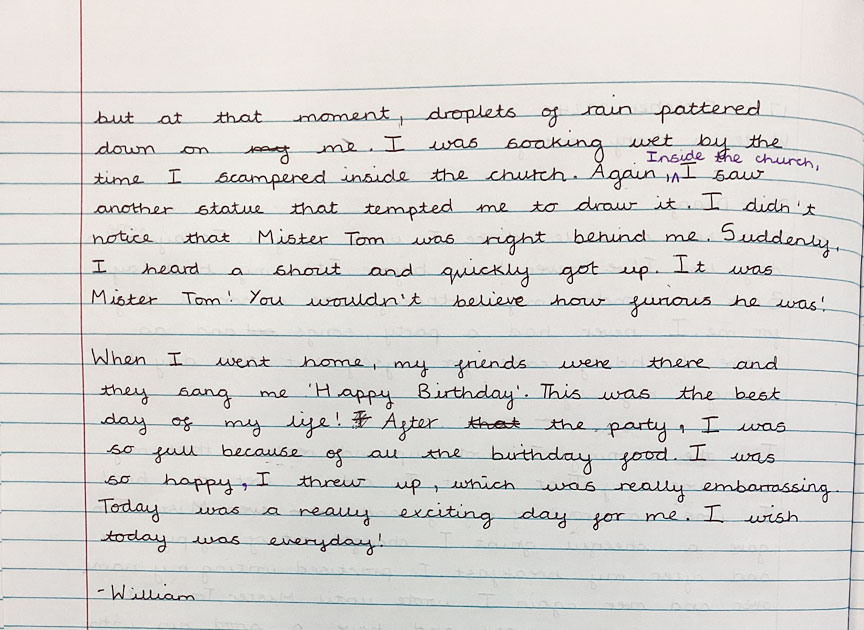 but at that moment, droplets of rain pattered
down on my me. I was soaking wet by the
Inside the church,
time I scampered inside the church. Again, ^ I saw
another statue that tempted me to draw it. I didn't
notice that Mister Tom was right behind me. Suddenly,
I heard a shout and quickly got up. It was
Mister Tom! You wouldn't believe how furious he was!
When I went home, my friends were there and
they sang me 'Happy Birthday'. This was the best
day of my life! I After that the party, I was
so full because of all the birthday food. I was
so happy, I threw up, which was really embarrassing.
Today was a really exciting day for me. I wish
today was everyday!
- William